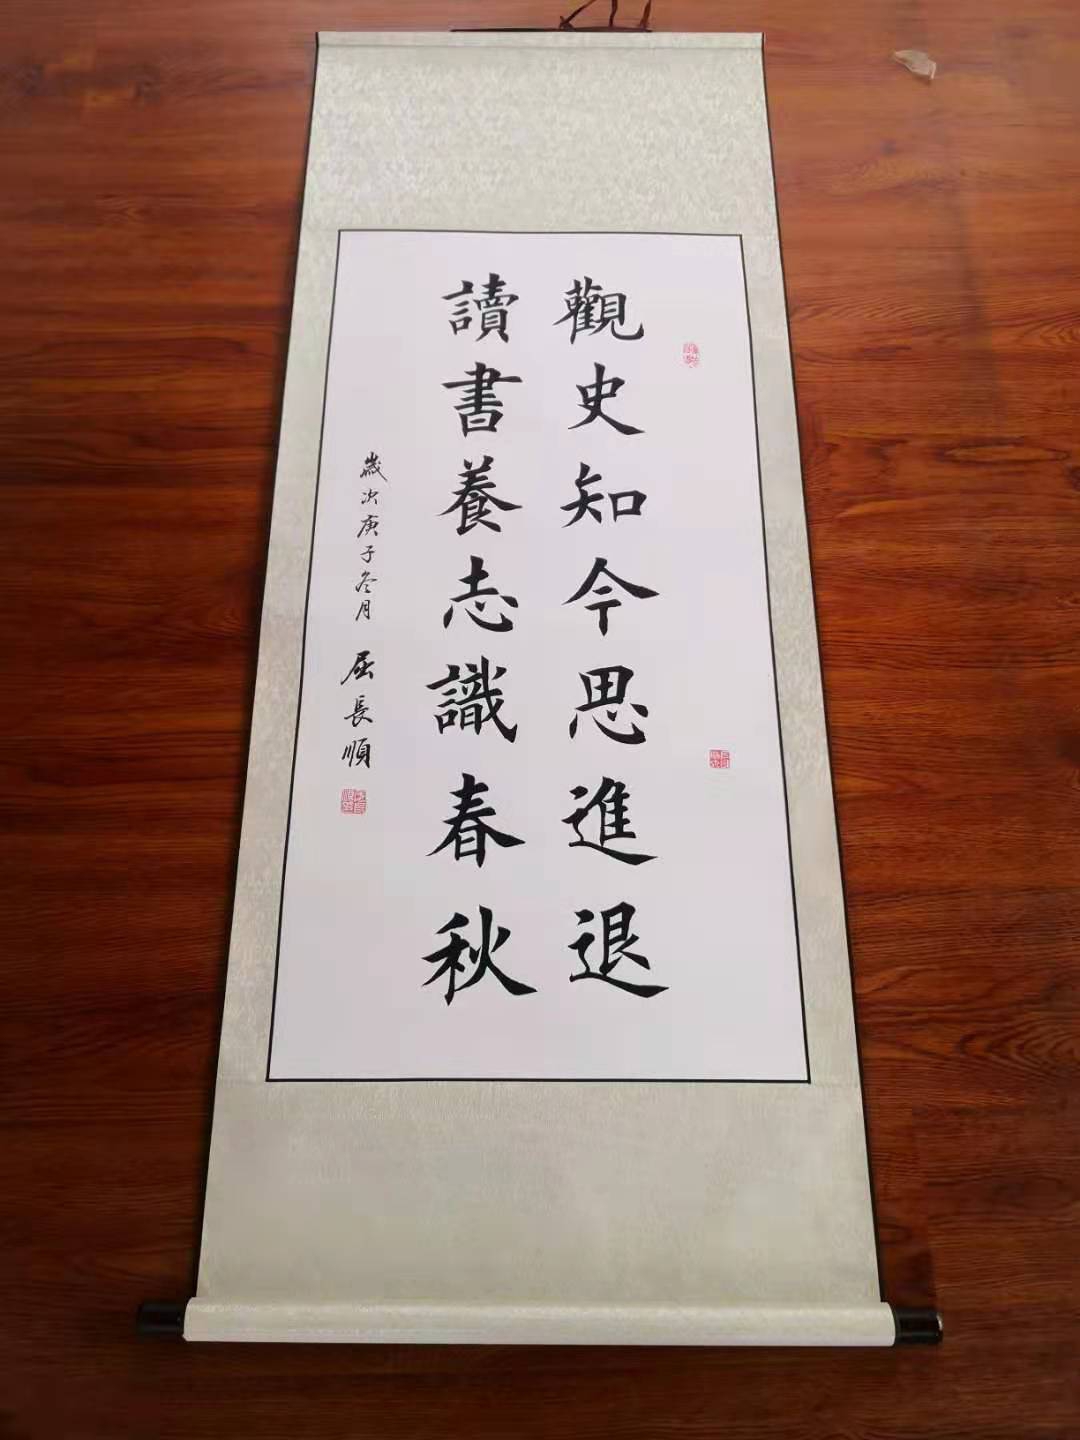 觀史知今思進退
讀書養志識春秋
歲次庚子冬月 屈長順